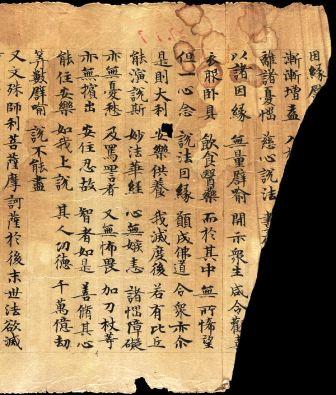 因緣
漸漸增益
離諸憂惱 慈心說法
以諸因緣 無量譬喻 開示衆生 咸令歡
衣服卧具 飲食醫藥 而於其中 無所悕望
但一心念 說法因緣 願成佛道 令衆亦尒
是則大利 安樂供養 我滅度後 若有比丘
能演說斯 妙法華經 心無嫉恚 諸惱障礙
亦無憂愁 及罵詈者 又無怖畏 加刀杖等
亦無擯出 安住忍故 智者如是 善脩其心
能住安樂 如我上說 其人功德 千萬億劫
筭數譬喻 說不能盡
又文殊師利菩薩摩訶薩於後末世法欲滅